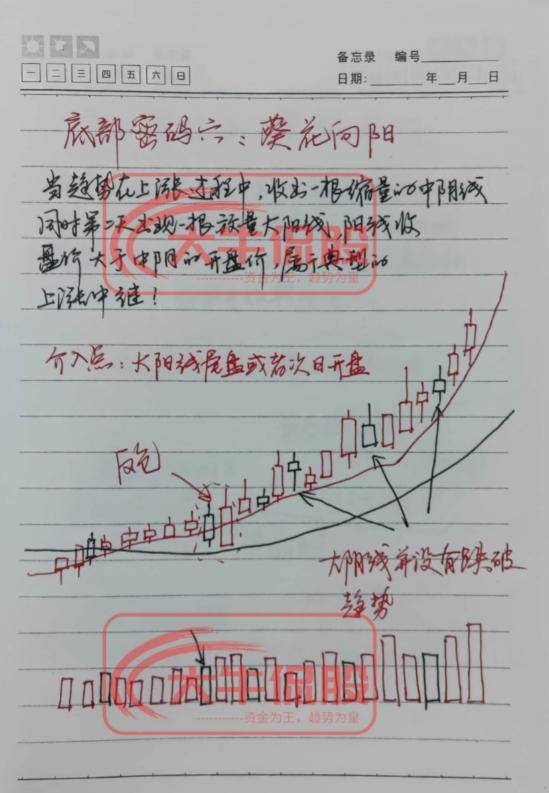 备忘录 编号
一 二 三 四 五 六 日
日期: 年 月 日
底部密码六：葵花向阳
当趋势在上涨过程中，收出一根缩量的中阴线
同时第二天出现一根放量大阳线，阳线收
盘价大于中阴的开盘价，属于典型的
上涨中继！
大牛侃股
----------资金为王，趋势为皇
介入点：大阳线尾盘或者次日开盘
反包
大阴线并没有跌破
趋势
大牛侃股
----------资金为王，趋势为皇